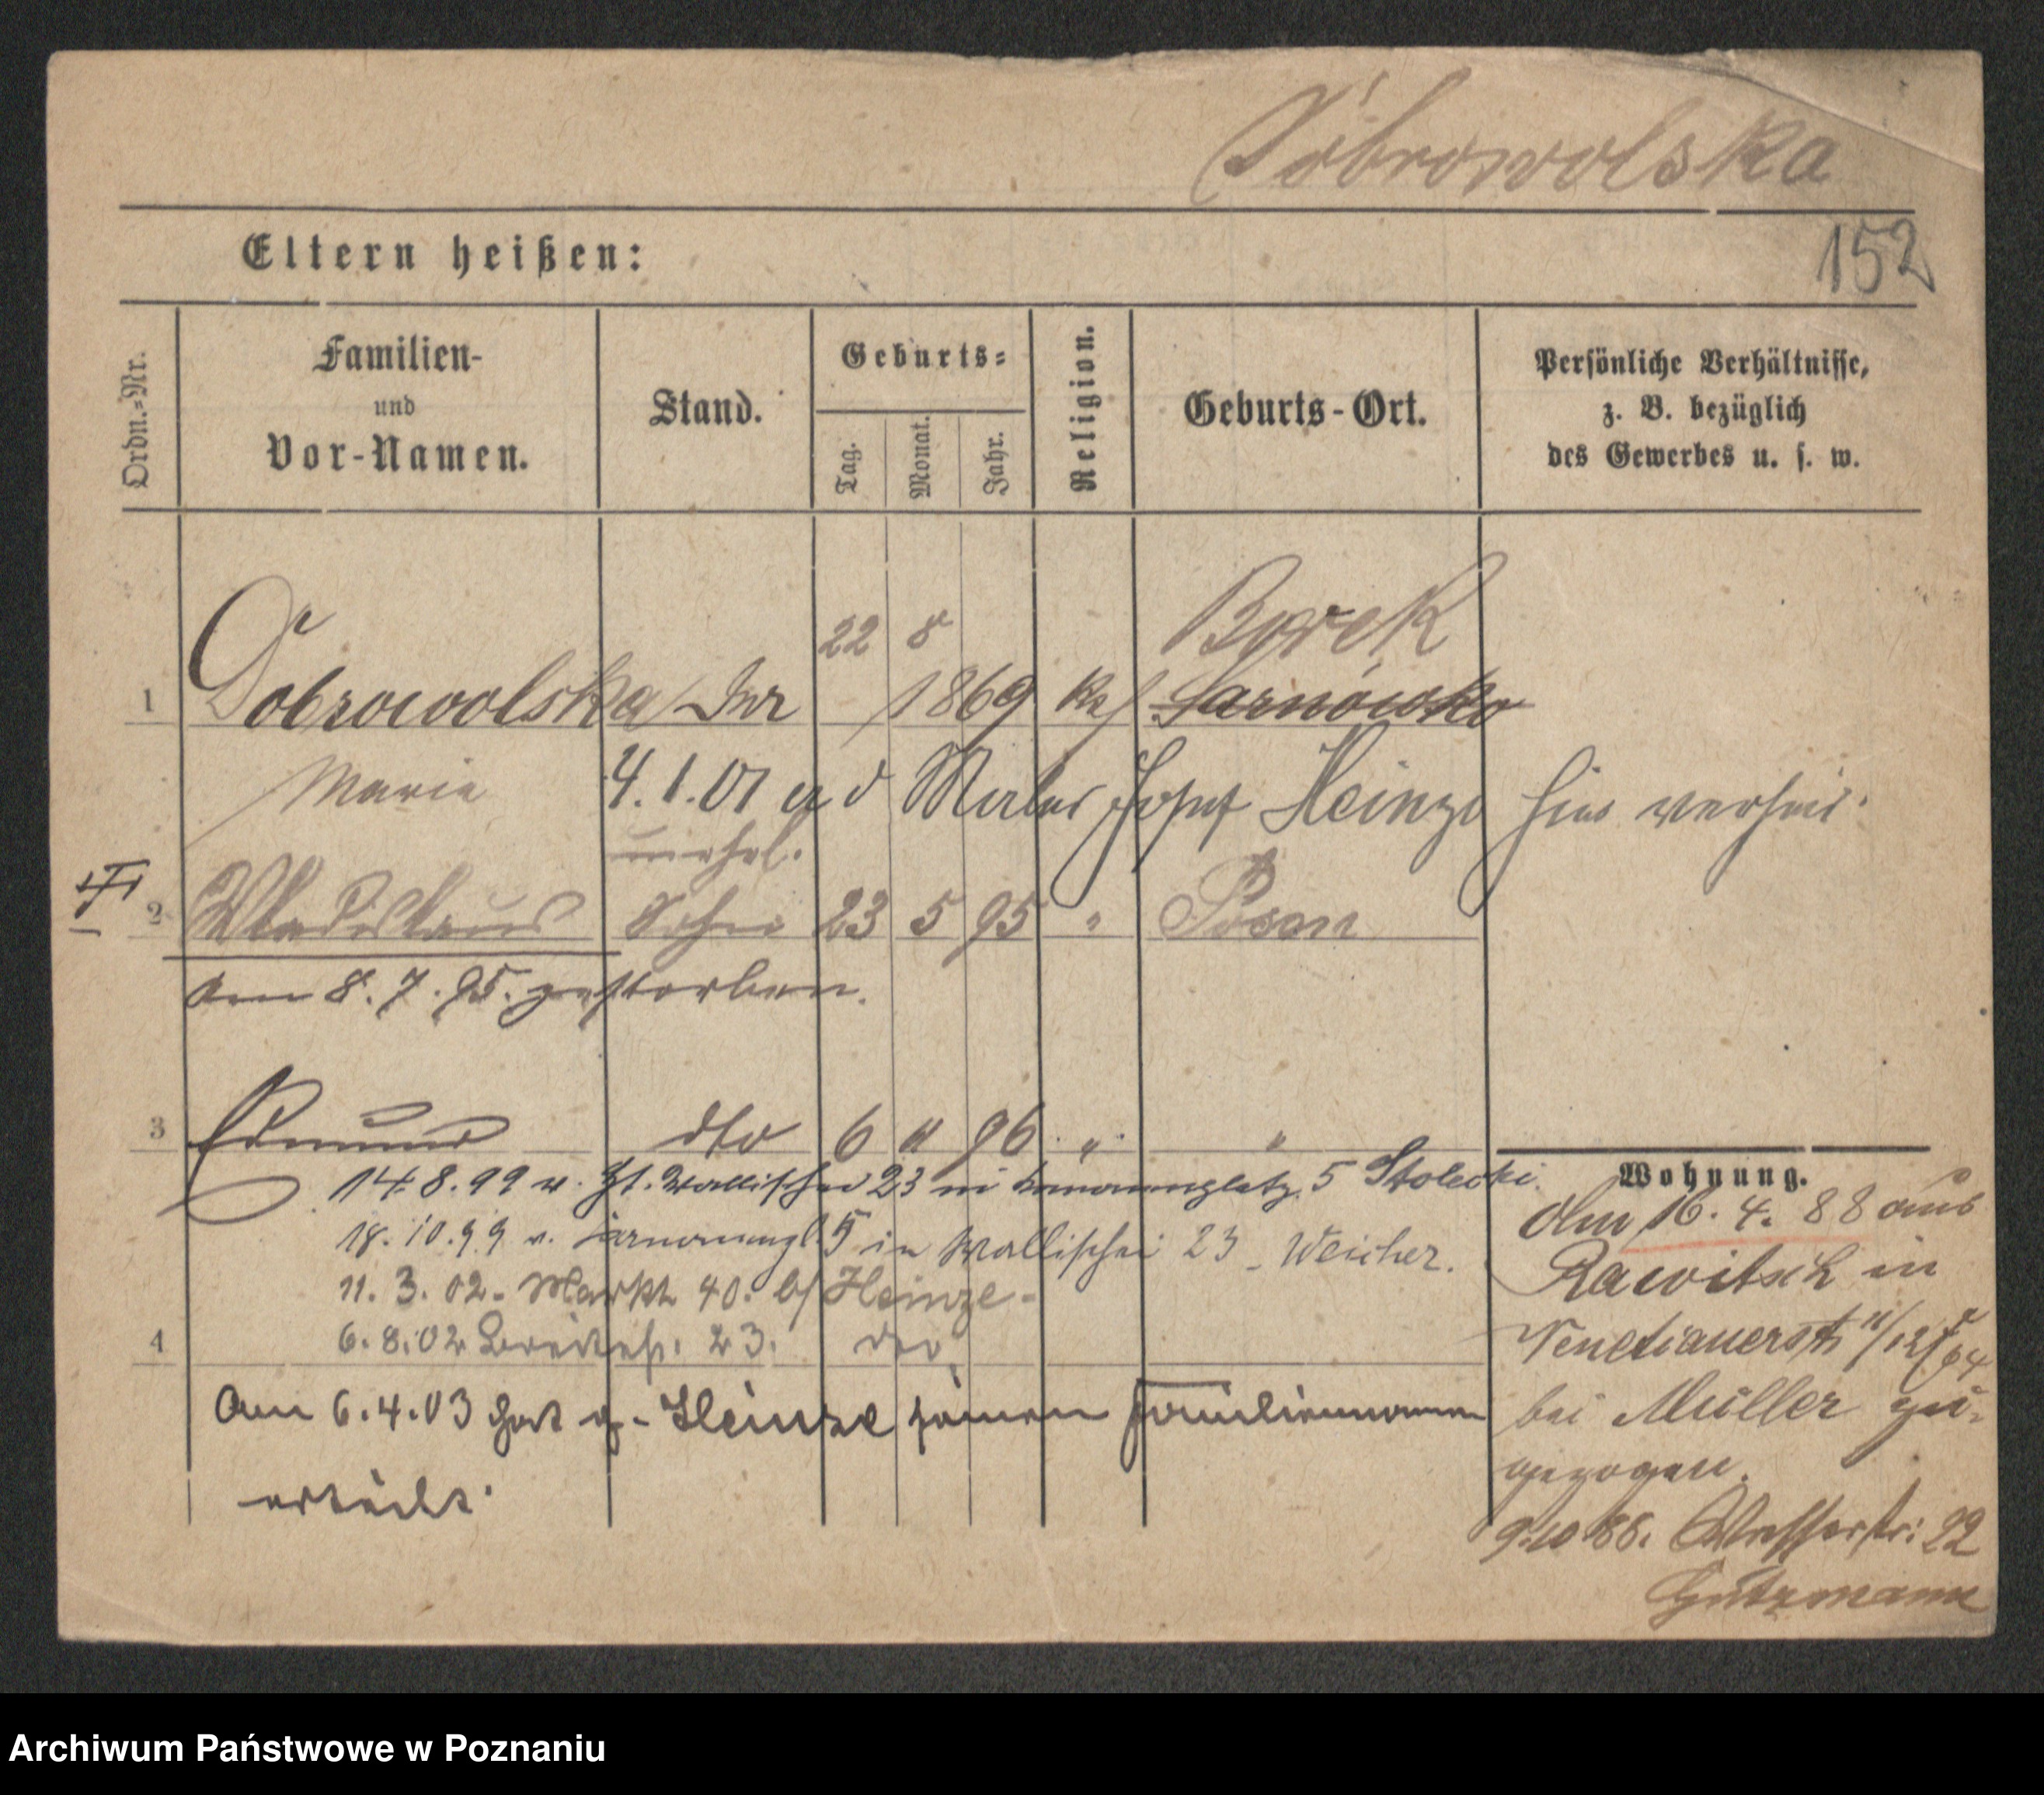 Dobrowolska
152
Eltern heißen:
Ordn.-Nr.
Familien-
und
Vor-Namen.
Stand.
Geburts-
Tag.
Monat.
Jahr.
Religion.
Geburts-Ort.
Persönliche Verhältnisse,
z. B. bezüglich
des Gewerbes u. s. w.
22 8 Borek
1 Dobrowolska 1869 Sarnówko
Marie 4.1.01 Maler Josef Heinze hier verheir.
unehel.
2 Wladislaus Sohn 23 5 95 " Posen
am 8.7.95. gestorben.
3 Edmund dto 6 96 " "
14.8.99 v. Wallischei 23 in 5 Stolecki
18.10.99 v. 5 in Wallischei 23 - Weicher.
11.3.02 - Markt 40. b/ Heinze -
4 6.8.02 Breitestr. 23. dto
Am 6.4.03 hat p. Heinze seinen Familiennamen
erteilt.
Wohnung.
Am 16.4.88 aus
Rawitsch in
Venetianerstr 11/12
bei Müller zu-
gezogen.
9.10 88. Wasserstr: 22
Gützmann
Archiwum Państwowe w Poznaniu